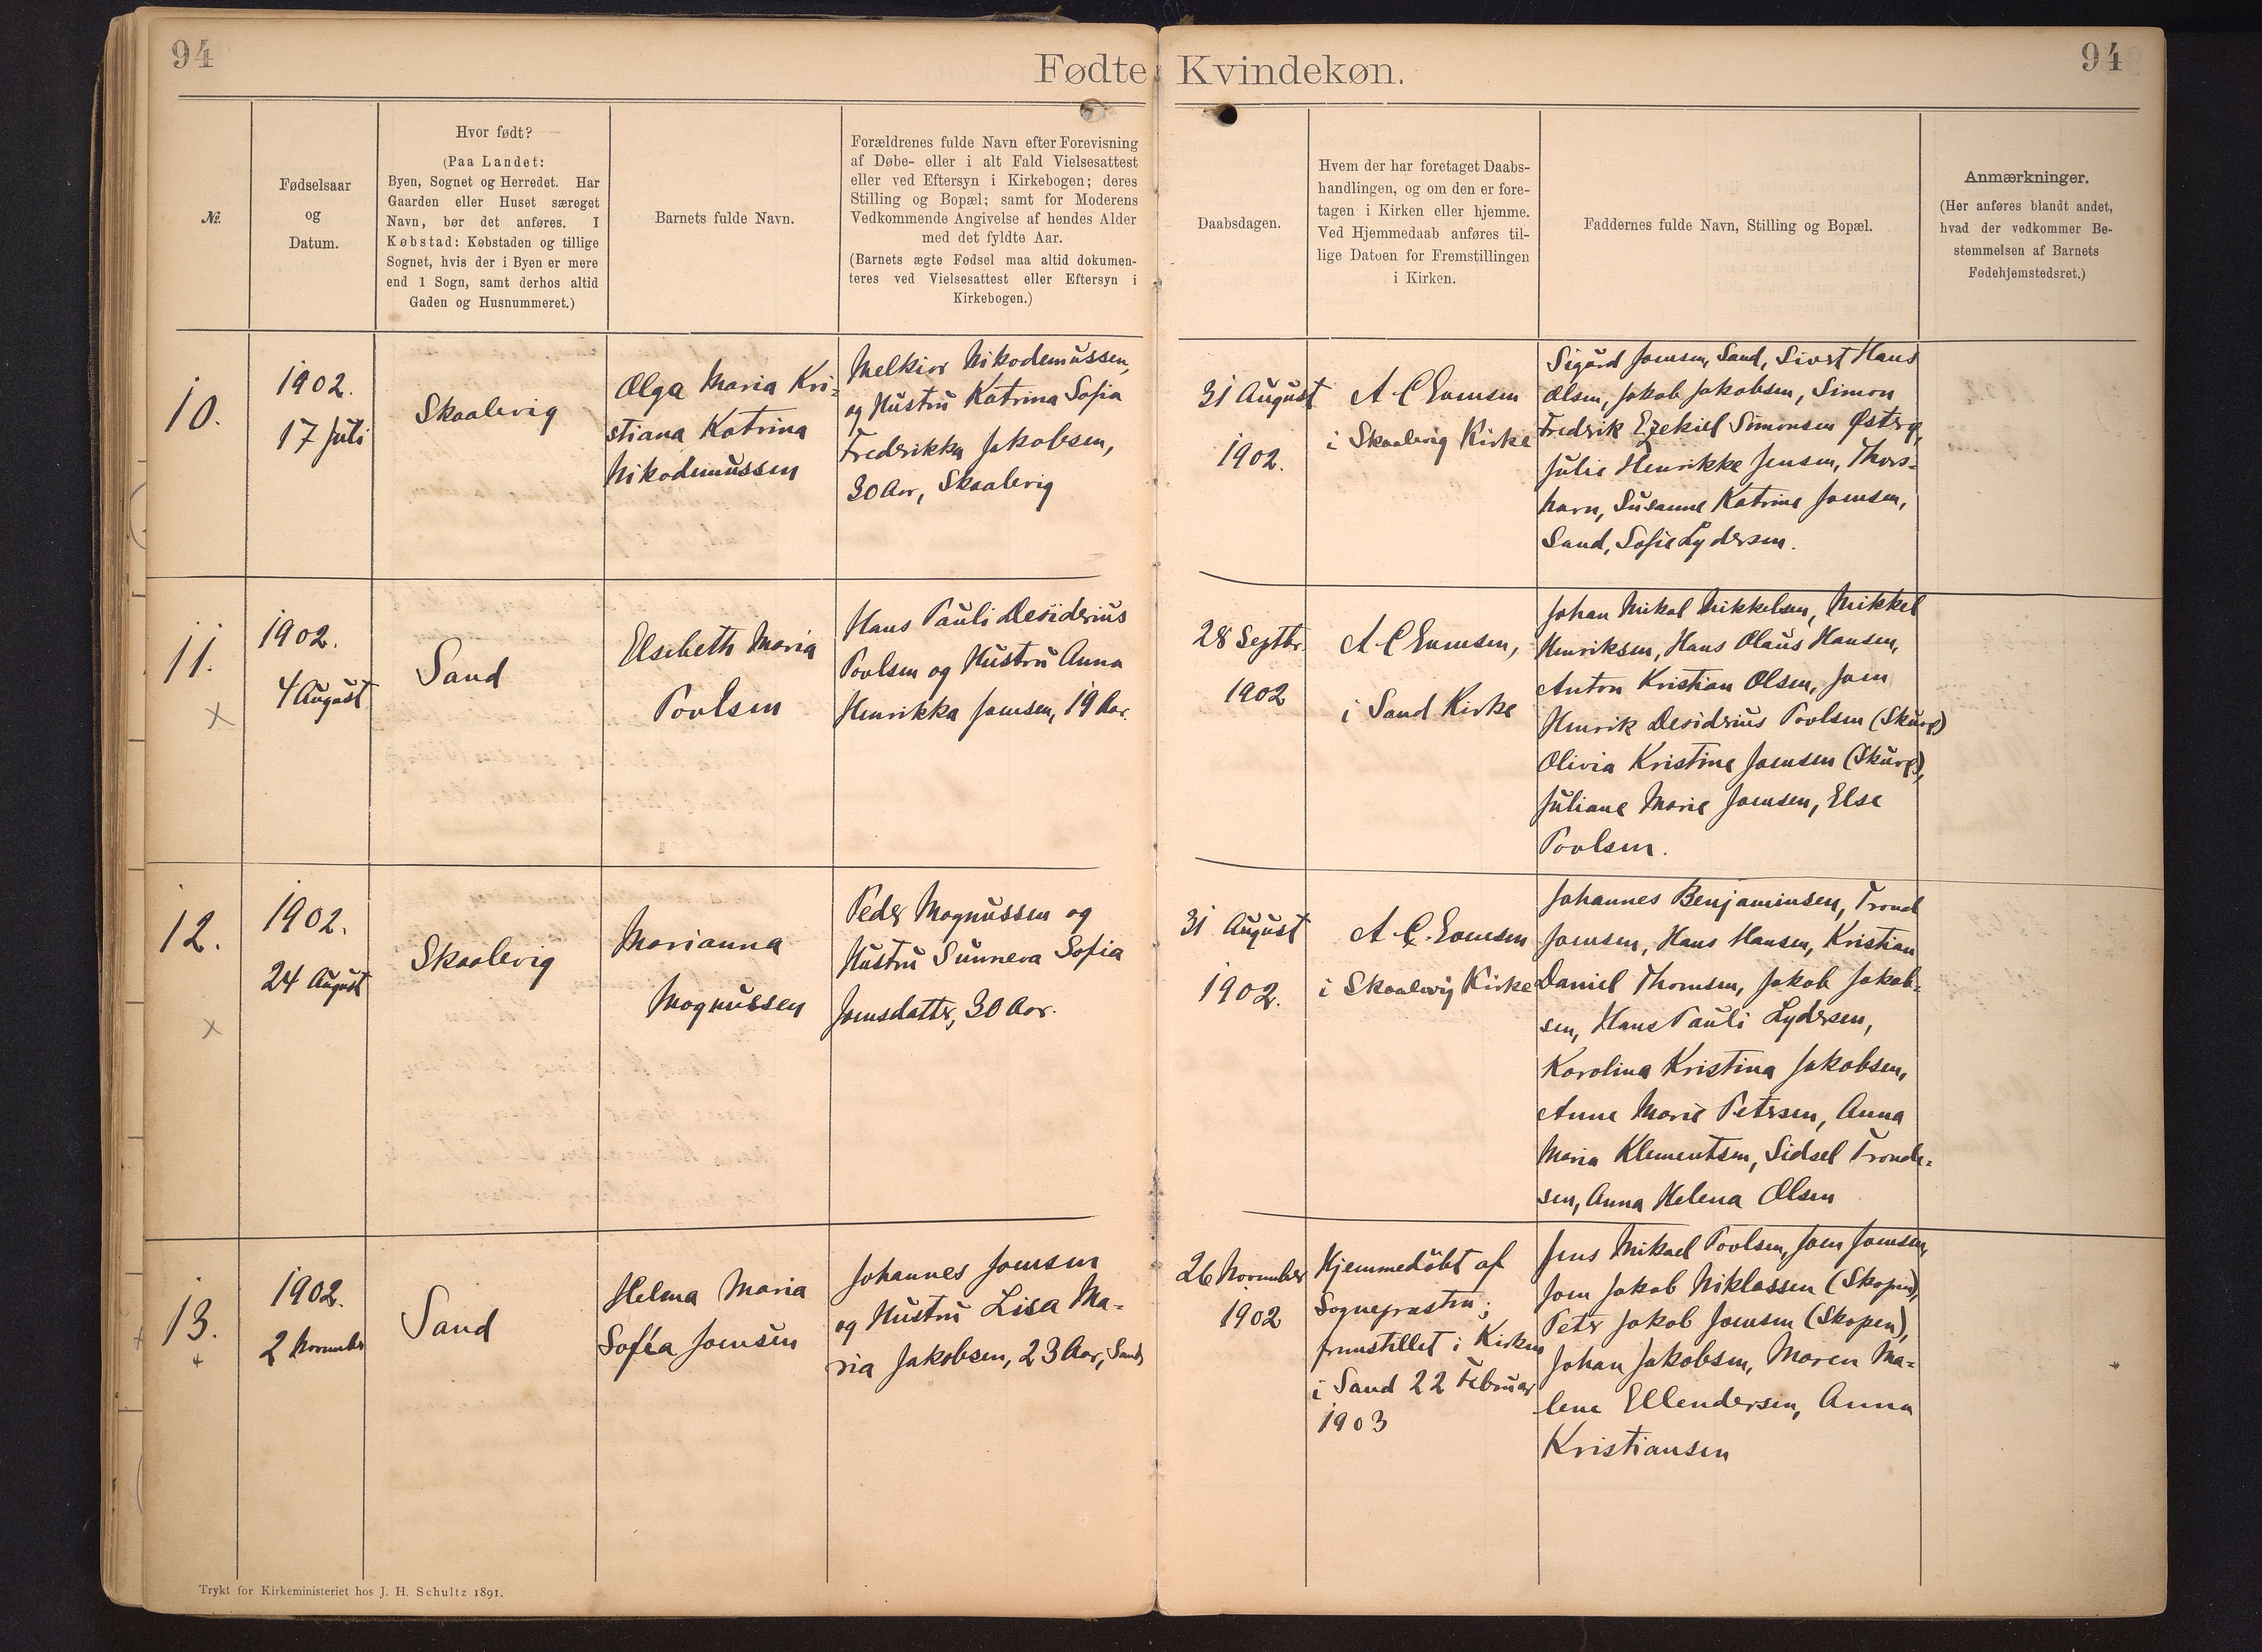 94
Fødte Kvindekøn.
94
№.
Fødselsaar
og
Datum.
Hvor født?
(Paa Landet:
Byen, Sognet og Herredet. Har
Gaarden eller Huset særeget
Navn, bør det anføres. I
Købstad: Købstaden og tillige
Sognet, hvis der i Byen er mere
end 1 Sogn, samt derhos altid
Gaden og Husnummeret.)
Barnets fulde Navn.
Forældrenes fulde Navn efter Forevisning
af Døbe- eller i alt Fald Vielsesattest
eller ved Eftersyn i Kirkebogen; deres
Stilling og Bopæl; samt for Moderens
Vedkommende Angivelse af hendes Alder
med det fyldte Aar.
(Barnets ægte Fødsel maa altid dokumen-
teres ved Vielsesattest eller Eftersyn i
Kirkebogen.)
Daabsdagen.
Hvem der har foretaget Daabs-
handlingen, og om den er fore-
tagen i Kirken eller hjemme.
Ved Hjemmedaab anføres til-
lige Datoen for Fremstillingen
i Kirken.
Faddernes fulde Navn, Stilling og Bopæl.
Anmærkninger.
(Her anføres blandt andet,
hvad der vedkommer Be-
stemmelsen af Barnets
Fødehjemstedsret.)
10.
1902.
17 Juli
Skaalevig
Olga Maria Kri-
stiana Katrina
Nikodemussen
Melkior Nikodemussen,
og Hustru Katrina Sofia
Fredrikka Jakobsen,
30 Aar, Skaalevig
31 August
1902.
A C Evensen
i Skaalevig Kirke
Sigurd Joensen, Sand, Sivert Hans
Olsen, Jakob Jakobsen, Simon
Fredrik Ezekiel Simonsen Østerø,
Julie Henrikke Jensen, Thors-
havn, Susanne Katrine Joensen,
Sand, Sofie Lydersen.
11.
1902.
4 August
Sand
Elsebeth Maria
Poulsen
Hans Pauli Desiderius
Poulsen og Hustru Anna
Henrikka Joensen, 19 Aar.
28 Septbr.
1902
A C Evensen,
i Sand Kirke
Johan Mikal Mikkelsen, Mikkel
Henriksen, Hans Olaus Hansen,
Anton Kristian Olsen, Joen
Henrik Desiderius Poulsen (Skarp)
Olivia Kristine Joensen (Skarp),
Juliane Marie Joensen, Else
Poulsen.
12.
1902.
24 August
Skaalevig
Marianna
Magnussen
Peder Magnussen og
Hustru Sunneva Sofia
Joensdatter, 30 Aar.
31 August
1902.
A. C. Evensen
i Skaalevig Kirke
Johannes Benjaminsen, Trond
Joensen, Hans Hansen, Kristian
Daniel Thomsen, Jakob Jakob-
sen, Hans Pauli Lydersen,
Karolina Kristina Jakobsen,
Anne Marie Petersen, Anna
Maria Klementsen, Sidsel Tronde-
sen, Anna Helena Olsen
13.
1902.
2 November
Sand
Helena Maria
Sofia Joensen
Johannes Joensen
og Hustru Lisa Ma-
ria Jakobsen, 23 Aar, Sand
26 November
1902
Hjemmedöbt af
Sognepræsten;
fremstillet i Kirken
i Sand 22 Februar
1903
Jens Mikael Poulsen, Joen Joensen,
Joen Jakob Niklassen (Skopen),
Peter Jakob Joensen (Skopen),
Johan Jakobsen, Maren Ma-
lene Ellendersen, Anna
Kristiansen
Trykt for Kirkeministeriet hos J. H. Schultz 1891.